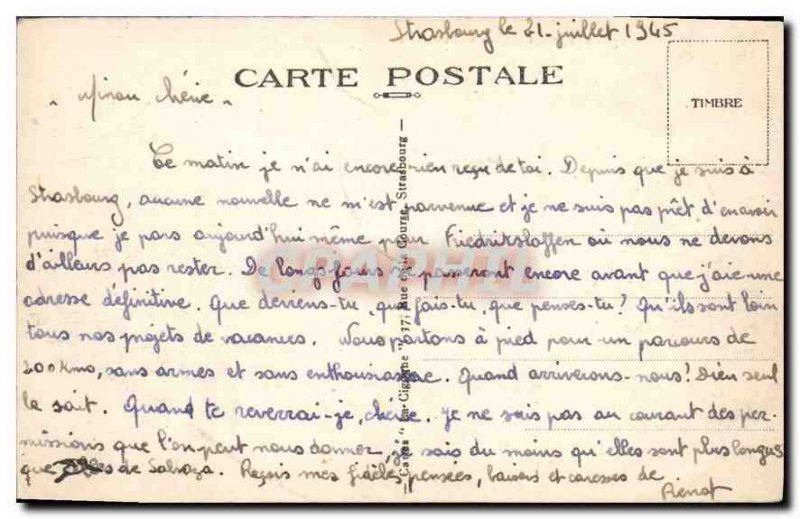 Strasbourg le 21 juillet 1945
CARTE POSTALE
TIMBRE
chérie
Ce matin je n'ai encore rien reçu de toi. Depuis que je suis à
Strasbourg, aucune nouvelle ne m'est parvenue et je ne suis pas prêt d'en avoir
puisque je pars aujourd'hui même pour où nous ne devons
d'ailleurs pas rester. De longs jours se passeront encore avant que j'aie une
adresse définitive. Que deviens-tu, que fais-tu, que penses-tu? Qu'ils sont loin
tous nos projets de vacances. Nous partons à pied pour un parcours de
200 Kms, sans armes et sans enthousiasme. Quand arriverons-nous! Dieu seul
le sait. Quand te reverrai-je, chérie. Je ne sais pas au courant des per-
missions que l'on peut nous donner, je sais du moins qu'elles sont plus longues
que de. Reçois mes fidèles pensées, baisers et caresses de
Cartes "La Cigogne" 37, Rue de la Course, Strasbourg
CARTE-GRAPHIL